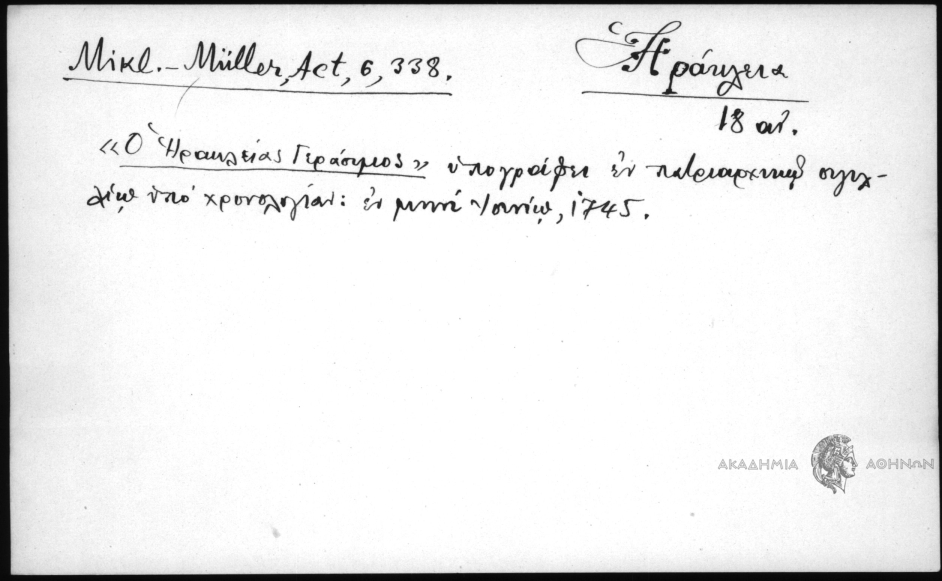 Mikl.-Müller, Act, 6, 338.
Ἡράκλεια
18 αἰ.
«Ὁ Ἡρακλείας Γεράσιμος» ὑπογράφει ἐν πατριαρχικῷ σιγιλ-
λίῳ ὑπό χρονολογίαν: ἐν μηνί Ἰουνίῳ, 1745.
ΑΚΑΔΗΜΙΑ ΑΘΗΝΩΝ